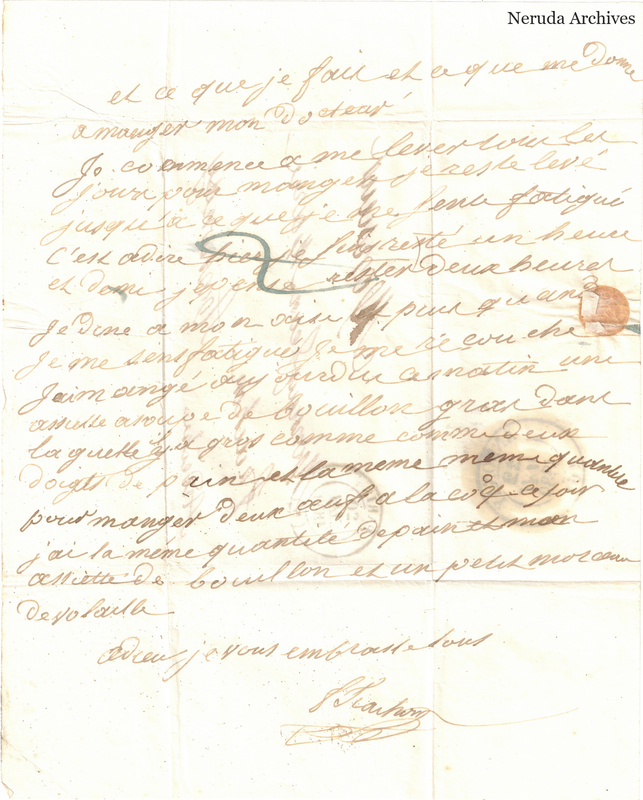 Neruda Archives
et ce que je fait et ce que me donne
a manger mon docteur
Je commence a me lever tous les
jours pour manger je reste levé
jusqu'a ce que je me sente fatigué
C'est adire resté un heure
et demi rester deux heures
Je dine a mon aise et puis quand
Je me sens fatigué Je me recouche
Jai mangé aujourdui ce matin une
assiette a soupe de bouillon gras dans
laquelle ya gros comme comme deux
doigts de pain et la meme meme quantité
pour manger deux œufs a la coq ce soir
j'ai la même quantité de pain et mon
assiette de bouillon et un petit morceau
de volaille
adieu je vous embrasse tous